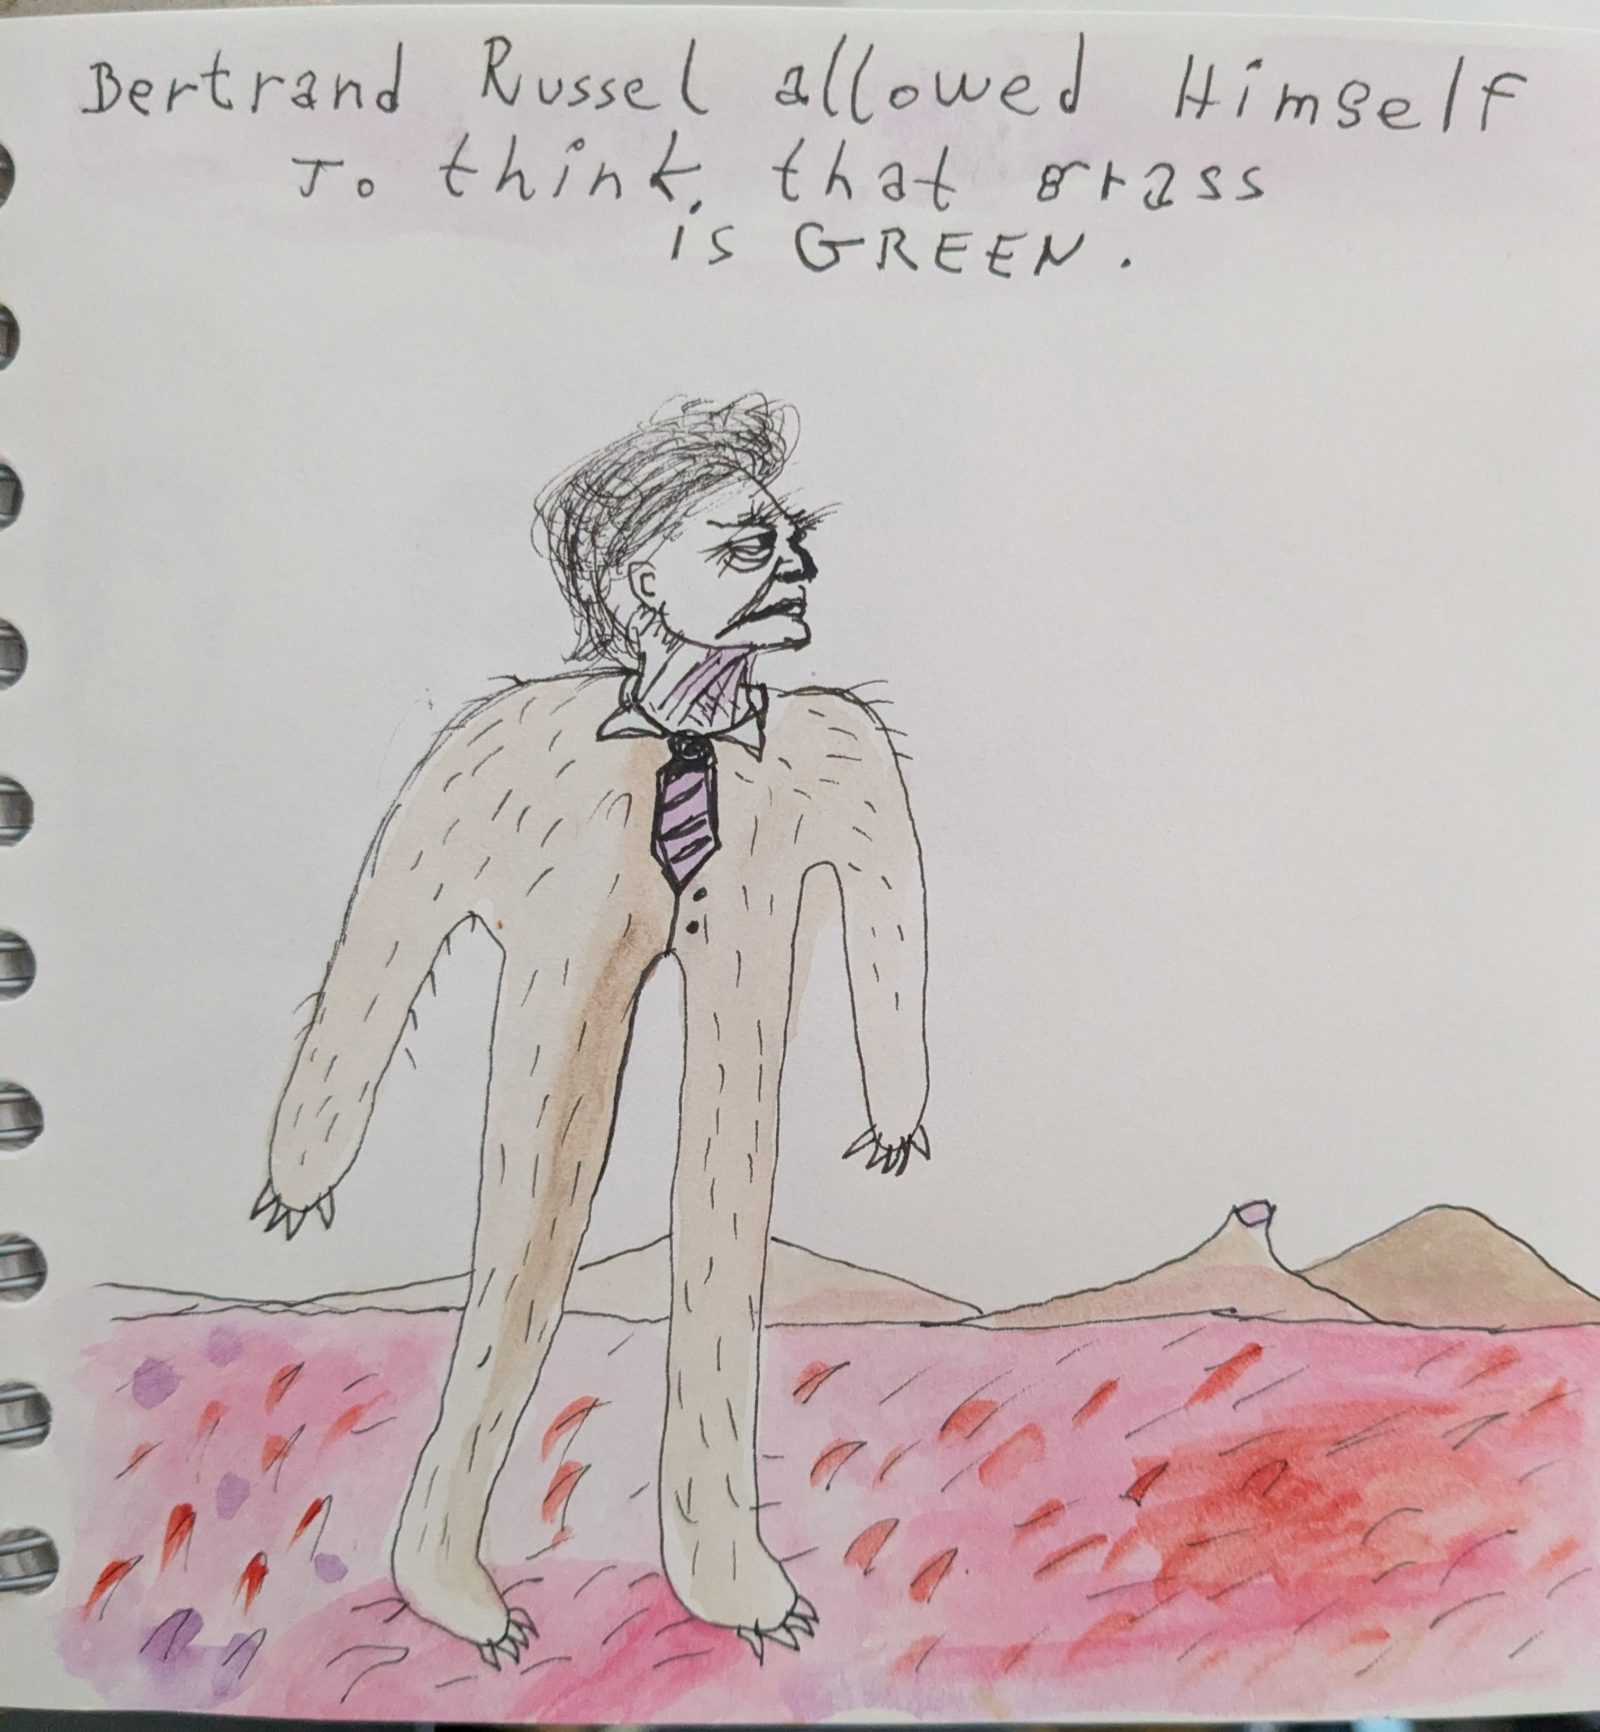 Bertrand Russel allowed Himself
To think, that grass
is GREEN.